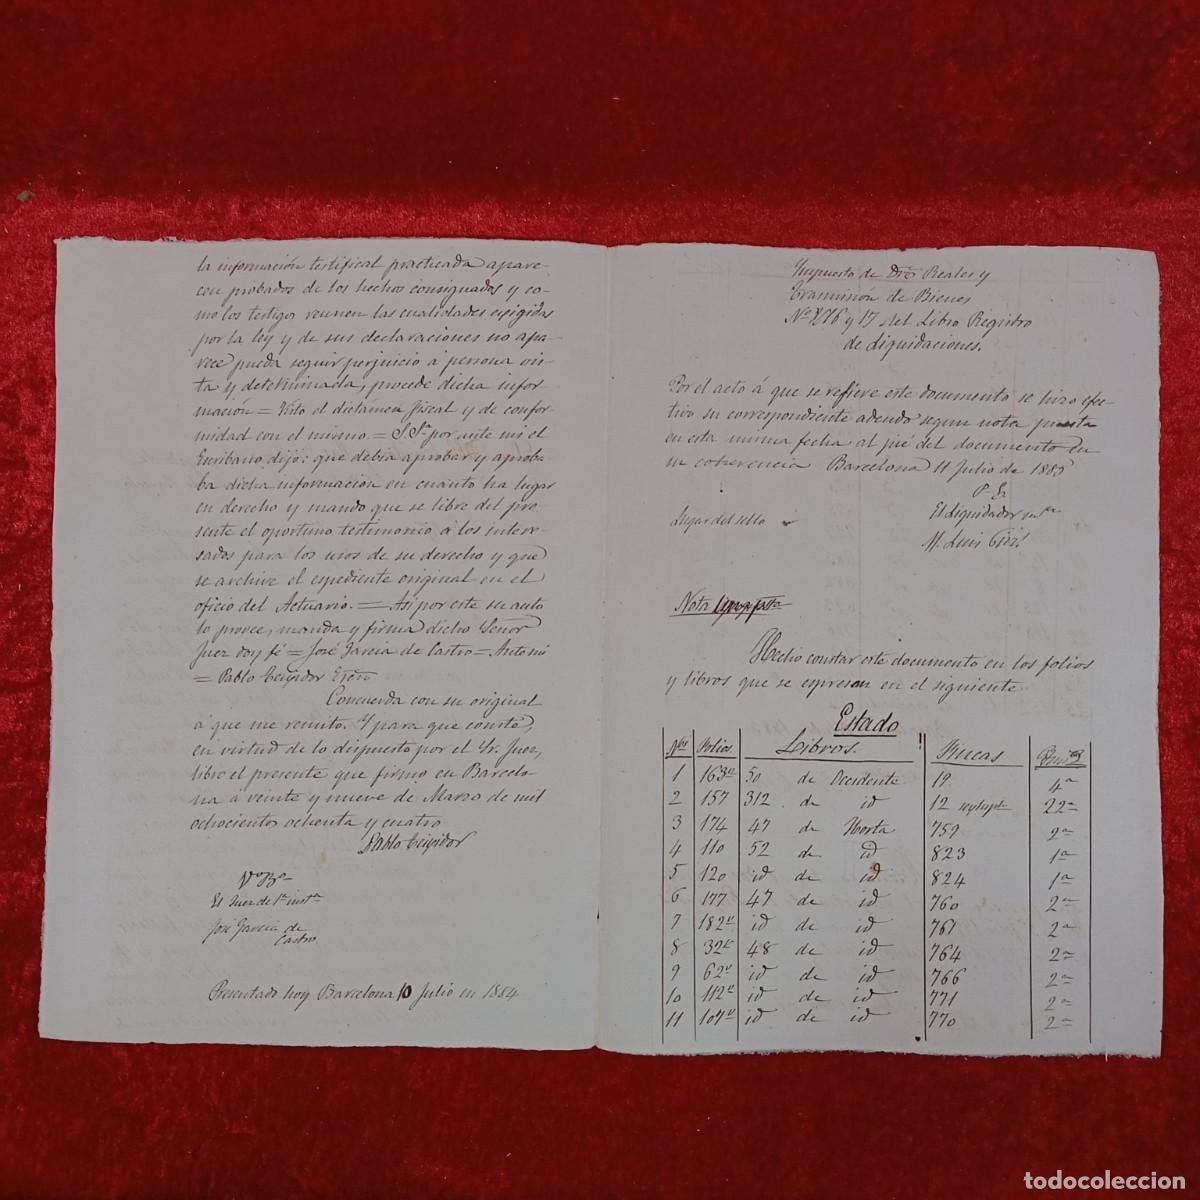 la información testifical practicada apare-
cen probados de los hechos consignados y co-
mo los testigos reunen las cualidades exigidas
por la ley y de sus declaraciones no apa-
rece pueda seguir perjuicio á persona cier-
ta y determinada, procede dicha infor-
mación = Visto el dictamen fiscal y de confor-
midad con el mismo = S. Sª por ante mi el
Escribano dijo: que debia aprobar y aproba-
ba dicha informacion en cuanto ha lugar
en derecho y mando que se libre del pre-
sente el oportuno testimonio á los intere-
sados para los usos de su derecho y que
se archive el espediente original en el
oficio del Actuario. = Asi por este su auto
lo provee, manda y firma dicho Señor
Juez doy fé = José Garcia de Castro = Antemi
= Pablo Teixidor Esno
Concuerda con su original
á que me remito. Y para que conste,
en virtud de lo dispuesto por el Sr. Juez,
libro el presente que firmo en Barcelo-
na á veinte y nueve de Marzo de mil
ochocientos ochenta y cuatro
Pablo Teixidor
Vº Bº
El Juez de 1ª instª
José Garcia de
Castro.
Presentado hoy Barcelona 10 Julio en 1884
Impuesto de Dros Reales y
trasmisión de Bienes
16 y 17 del Libro Registro
de Liquidaciones.
Por el acto á que se refiere este documento se hizo efec-
tivo su correspondiente adeudo segun nota puesta
en esta misma fecha al pié del documento en
su coherencia Barcelona 11 Julio de 1885
El Liquidador
M. Luis
Lugar del sello
Nota
Hecho constar este documento en los folios
y libros que se espresan en el siguiente
Estado
Nos Folios. Libros. Fincas
1 163vº 50 de Occidente 19 4ª
2 157 312 de id 12 22ª
3 174 47 de Horta 759 2ª
4 110 52 de id 823 1ª
5 120 id de id 824 1ª
6 177 47 de id 760 2ª
7 182vº id de id 761 2ª
8 32vº 48 de id 764 2ª
9 62vº id de id 766 2ª
10 112vº id de id 771 2ª
11 107vº id de id 770 2ª
todocoleccion